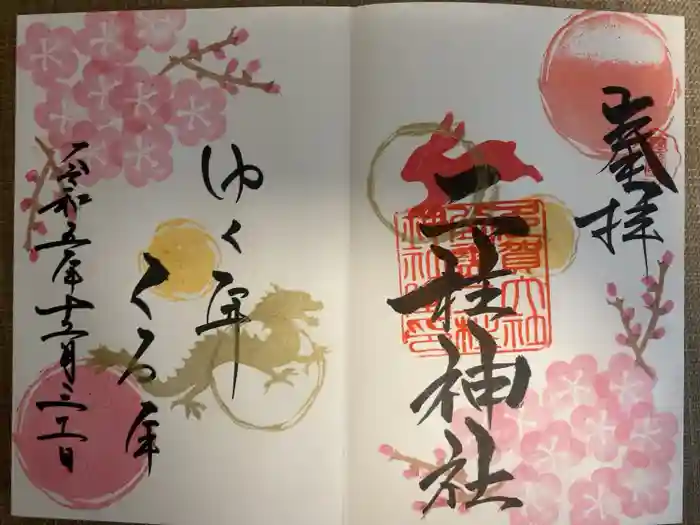 奉拝
二社神社
ゆく年
くる年
令和五年十二月三十一日